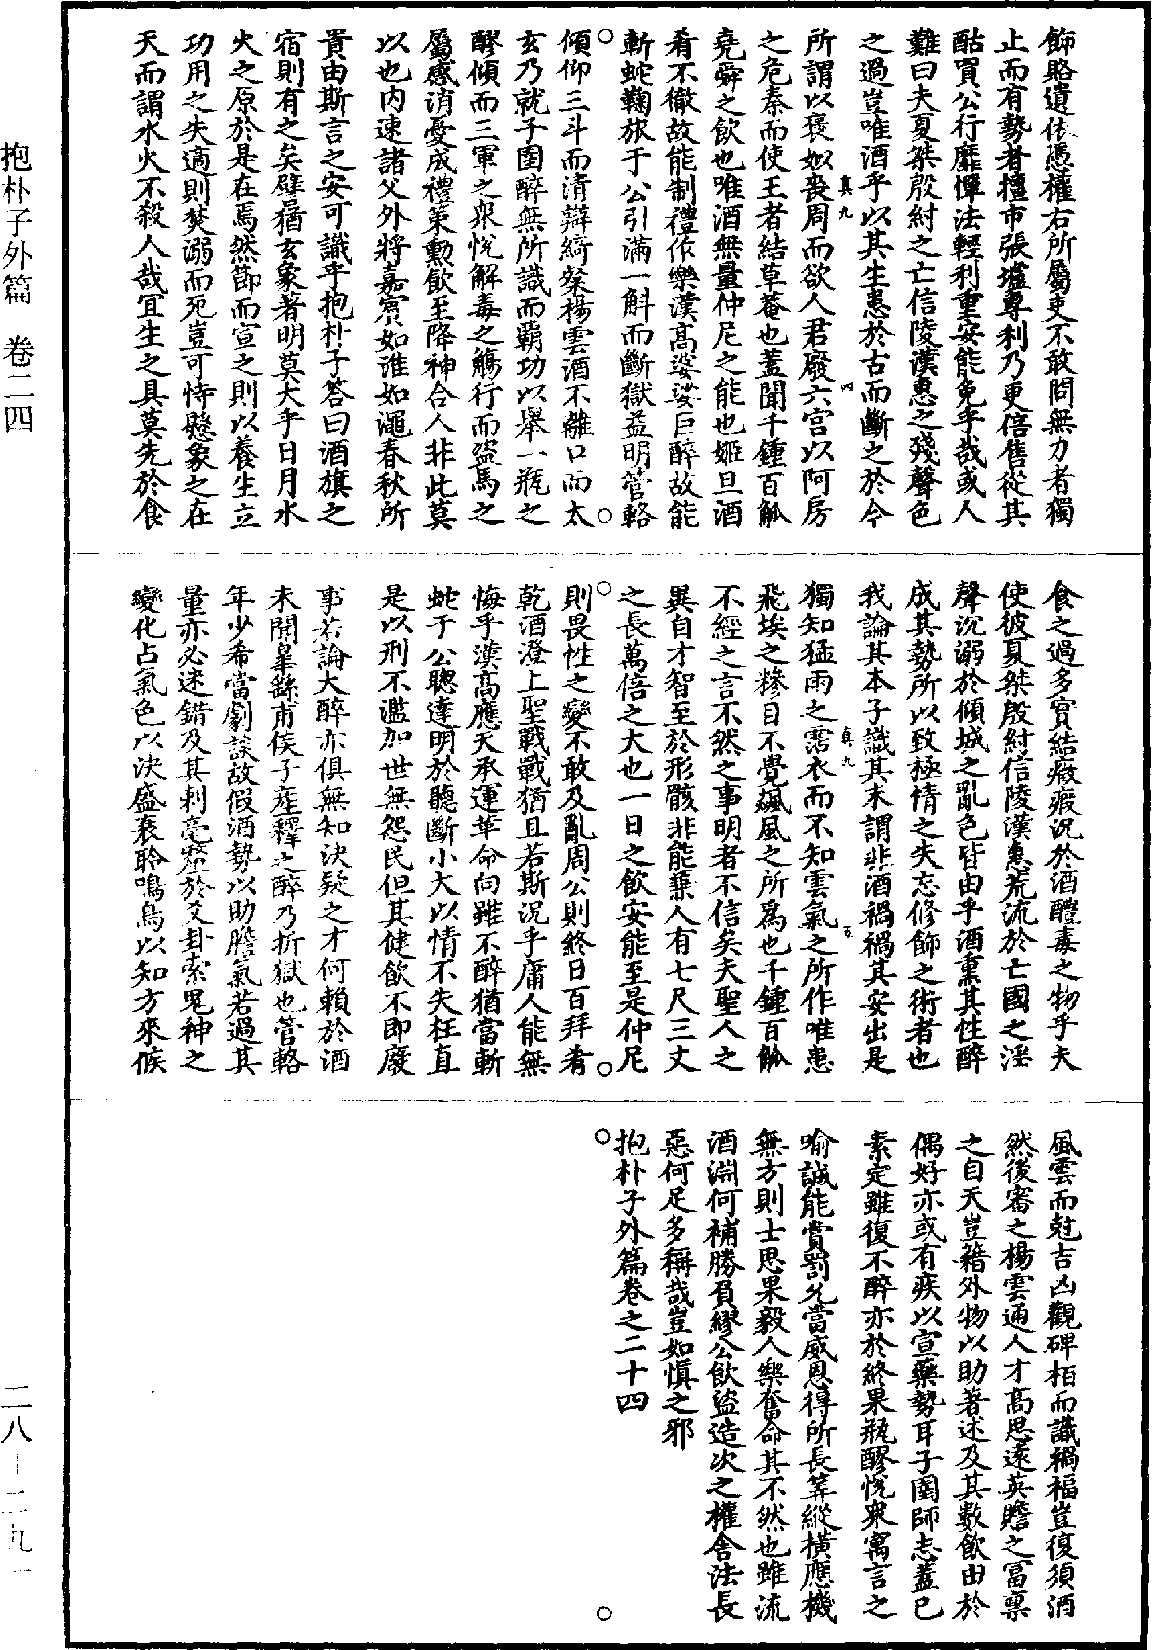 抱朴子外篇　卷二四
飾賂遺依憑權右所屬吏不敢問無力者獨
止而有勢者擅市張壚專利乃更倍售從其
酤買公行靡憚法輕利重安能免乎哉或人
難曰夫夏桀殷紂之亡信陵漢惠之殘聲色
之過豈唯酒乎以其生患於古而斷之於今
所謂以褒姒喪周而欲人君廢六宮以阿房
之危秦而使王者結草菴也蓋聞千鍾百觚
堯舜之飲也唯酒無量仲尼之能也姬旦酒
肴不徹故能制禮作樂漢高婆娑巨醉故能
斬蛇鞠旅于公引滿一斛而斷獄益明管輅
傾仰三斗而清辯綺粲楊雲酒不離口而太
玄乃就子圉醉無所識而霸功以舉一瓶之
醪傾而三軍之衆悅解毒之觴行而盜馬之
屬感消憂成禮策勳飲至降神合人非此莫
以也内速諸父外將嘉賓如淮如澠春秋所
貴由斯言之安可識乎抱朴子荅曰酒旗之
宿則有之矣譬猶玄象著明莫大乎日月水
火之原於是在焉然節而宣之則以養生立
功用之失適則焚溺而死豈可恃懸象之在
天而謂水火不殺人哉宜生之具莫先於食
食之過多實結癥瘕況於酒醴毒之物乎夫
使彼夏桀殷紂信陵漢惠荒流於亡國之淫
聲沉溺於傾城之亂色皆由乎酒熏其性醉
成其勢所以致極情之失忘修飾之術者也
我論其本子識其末謂非酒禍禍其安出是
獨知猛雨之霑衣而不知雲氣之所作唯患
飛埃之糝目不覺飆風之所為也千鍾百觚
不經之言不然之事明者不信矣夫聖人之
異自才智至於形骸非能兼人有七尺三丈
之長萬倍之大也一日之飲安能至是仲尼
則畏性之變不敢及亂周公則終日百拜肴
乾酒澄上聖戰戰猶且若斯況乎庸人能無
悔乎漢高應天承運革命向雖不醉猶當斬
蛇于公聰達明於聽斷小大以情不失枉直
是以刑不濫加世無怨民但其健飲不即廢
事若論大醉亦俱無知決疑之才何賴於酒
未聞皐繇甫侯子產釋之醉乃折獄也管輅
年少希當劇談故假酒勢以助膽氣若過其
量亦必迷錯及其刺毫釐於爻卦索鬼神之
變化占氣色以決盛衰聆鳴鳥以知方來候
風雲而尅吉凶觀碑柏而識禍福豈復須酒
然後審之楊雲通人才高思遠英贍之富稟
之自天豈藉外物以助著述及其數飲由於
偶好亦或有疾以宣藥勢耳子圉師志蓋已
素定雖復不醉亦於終果瓶醪悅衆寓言之
喻誠能賞罰允當威恩得所長筭縱橫應機
無方則士思果毅人樂奮命其不然也雖流
酒淵何補勝負繆公飲盜造次之權舍法長
惡何足多稱哉豈如慎之邪
抱朴子外篇卷之二十四